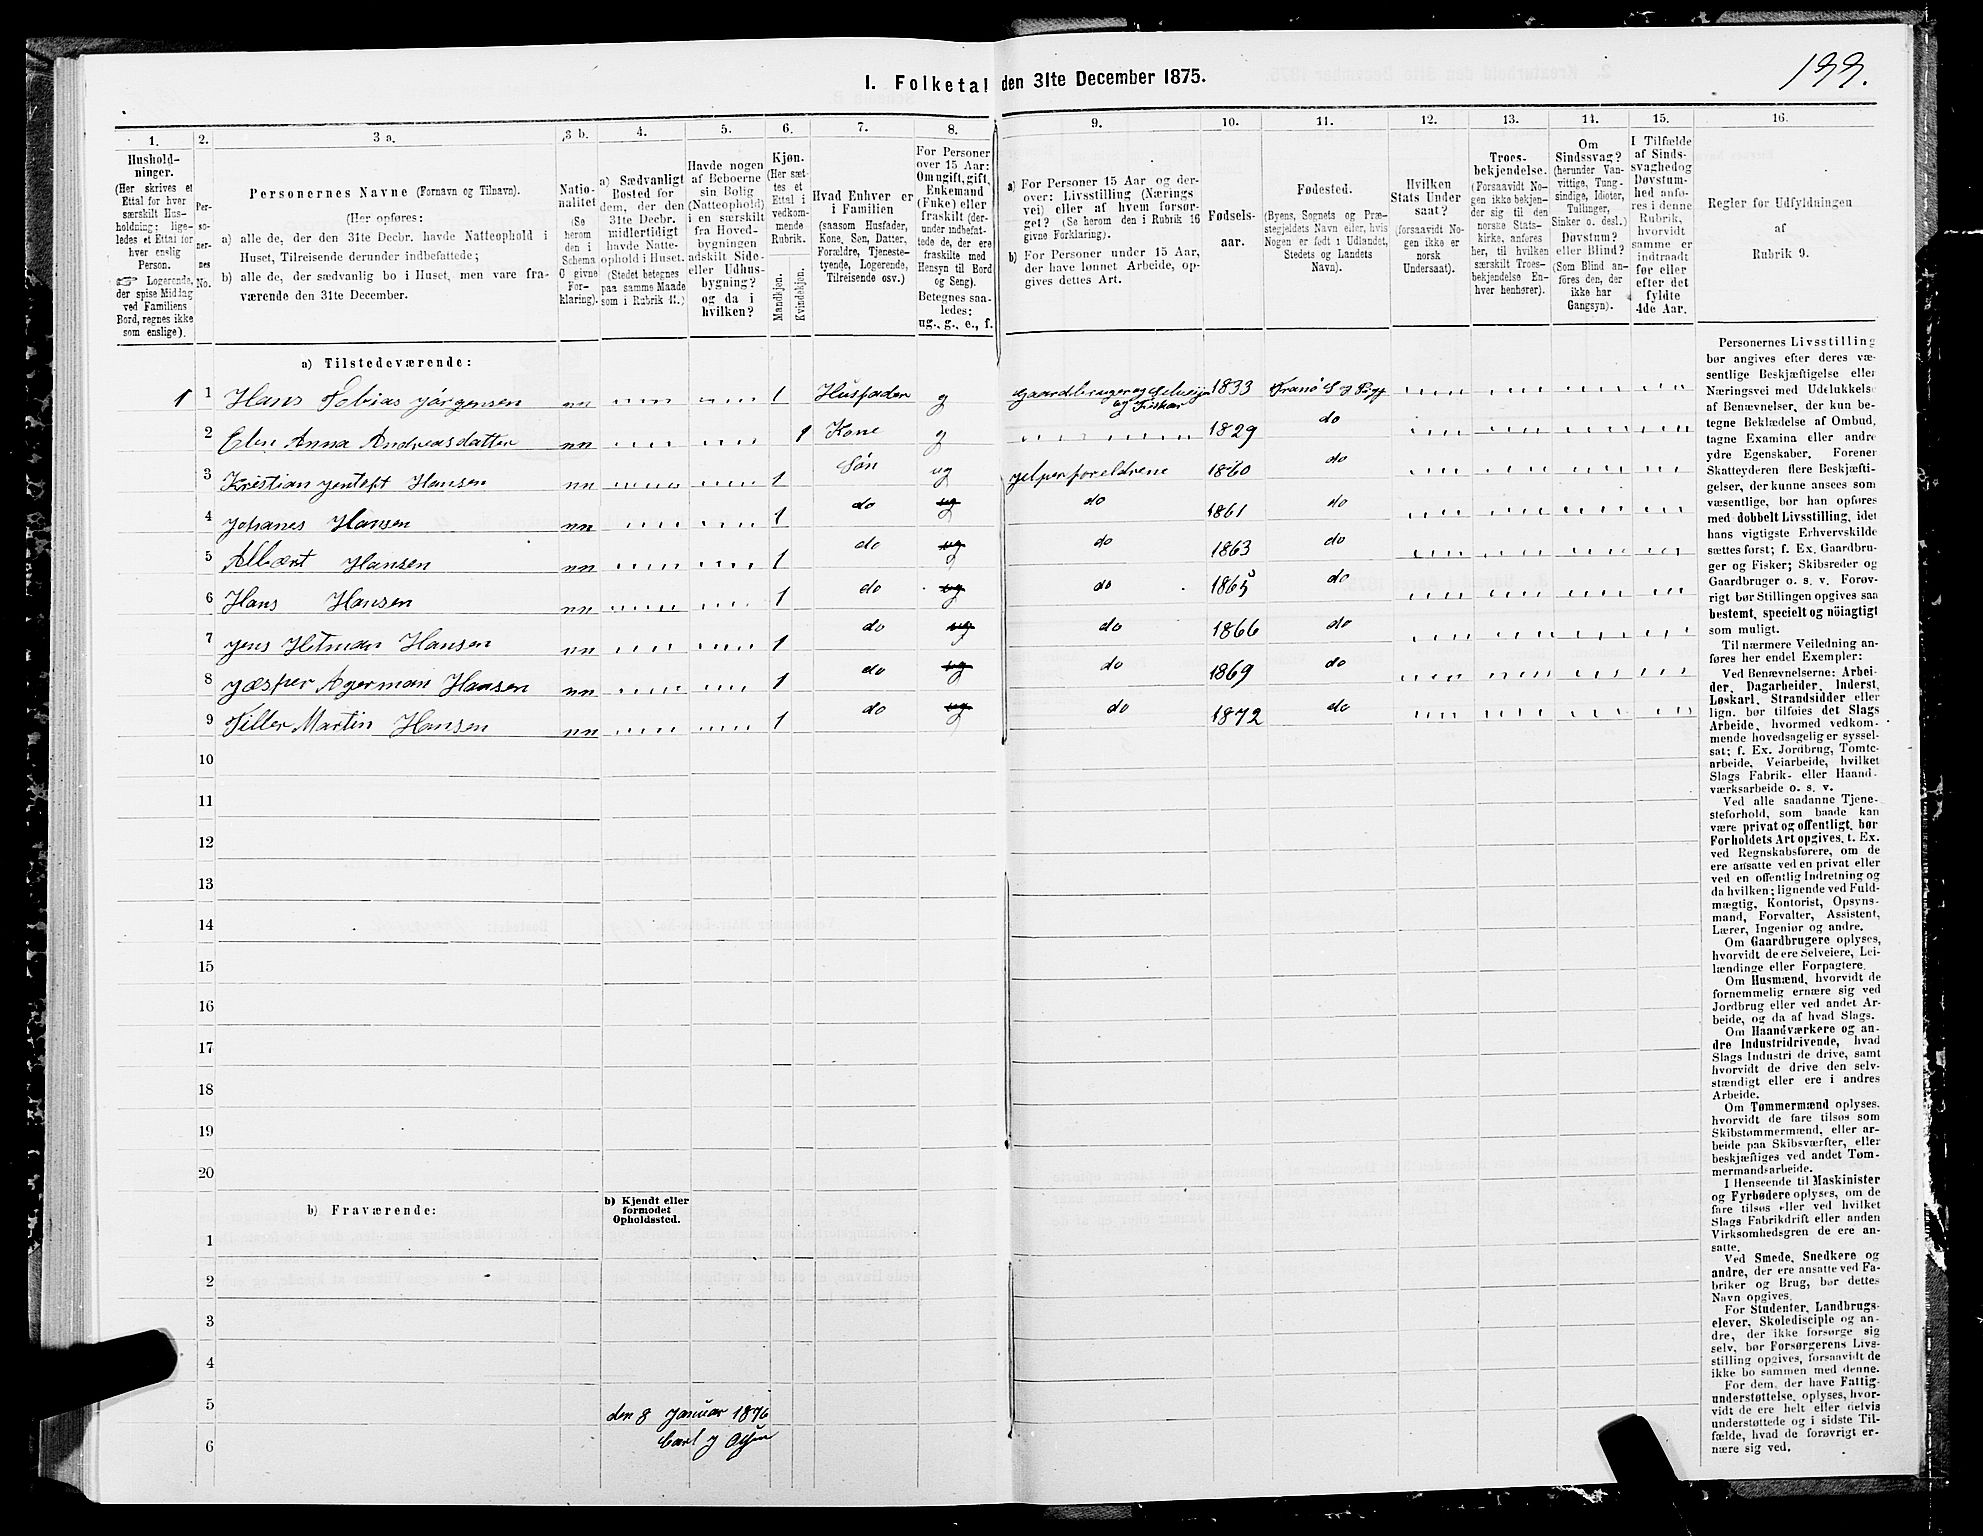 199.
I. Folketal den 31te December 1875.
1. 2. 3 a. 3 b. 4. 5. 6. 7. 8. 9. 10. 11. 12. 13. 14. 15. 16.
Hushold-
ninger.
(Her skrives et
Ettal for hver
særskilt Hus-
holdning; lige-
ledes et Ettal for
hver enslig
Person.
☞ Logerende,
der spise Middag
ved Familiens
Bord, regnes ikke
som enslige).
Per-
so-
ner-
nes
No.
Personernes Navne (Fornavn og Tilnavn).
(Her opføres:
a) alle de, der den 31te Decbr. havde Natteophold i
Huset, Tilreisende derunder indbefattede;
b) alle de, der sædvanlig bo i Huset, men vare fra-
værende den 31te December.
Natio-
nalitet
(Se
herom
den i
Schema
C givne
For-
klaring).
a) Sædvanligt
Bosted for
dem, der den
31te Decbr.
midlertidigt
havde Natte-
ophold i Huset.
(Stedet betegnes
paa samme Maade
som i Rubrik 11.)
Havde nogen
af Beboerne
sin Bolig
(Natteophold)
i en særskilt
fra Hoved-
bygningen
adskilt Side-
eller Udhus-
bygning?
og da i
hvilken?
Kjøn.
(Her sæt-
tes et
Ettal i
vedkom-
mende
Rubrik.
Mandkjøn.
Kvindekjøn.
Hvad Enhver er
i Familien
(saasom Husfader,
Kone, Søn, Datter,
Forældre, Tjeneste-
tyende, Logerende,
Tilreisende osv.)
For Personer
over 15 Aar:
Om ugift, gift,
Enkemand
(Fuke) eller
fraskilt (der-
under indbefat-
tede de, der ere
fraskilte med
Hensyn til Bord
og Seng).
Betegnes saa-
ledes:
ug., g., e., f.
a) For Personer 15 Aar og der-
over: Livsstilling (Nærings-
vei) eller af hvem forsør-
get? (Se herom den i Rubrik 16
givne Forklaring).
b) For Personer under 15 Aar,
der have lønnet Arbeide, op-
gives dettes Art.
Fødsels-
aar.
Fødested.
(Byens, Sognets og Præ-
stegjeldets Navn eller, hvis
Nogen er født i Udlandet,
Stedets og Landets
Navn).
Hvilken
Stats Under
saat?
(forsaavidt No-
gen ikke er
norsk
Undersaat).
Troes-
bekjendelse.
(Forsaavidt No-
gen ikke bekjen-
der sig til den
norske Stats-
kirke, anføres
her, til hvilken
særskilt Troes-
bekjendelse En-
hver henhører).
Om
Sindssvag?
(herunder Van-
vittige, Tung-
sindige, Idioter,
Tullinger,
Sinker o. desl.)
Døvstum?
eller Blind?
(Som Blind an-
føres den, der
ikke har
Gangsyn).
I Tilfælde
af Sinds-
svaghed og
Døvstum-
hed anfø-
res i denne
Rubrik,
hvorvidt
samme er
indtraadt
før eller
efter det
fyldte
4de Aar.
Regler for Udfyldningen
af
Rubrik 9.
a) Tilstedeværende:
1 1 Hans Tobias Jørgensen nn 1 Husfader g Gaardbruger og Selveijer og Fisker 1833 Tranø S & Pgjf
2 Elen Anna Andreasdatter nn 1 Kone g 1829 do
3 Kristian Jentoft Hansen nn 1 Søn ug jelper foreldrene 1860 do
4 Johanes Hansen nn 1 do ug do 1861 do
5 Albært Hansen nn 1 do ug do 1863 do
6 Hans Hansen nn 1 do ug do 1865 do
7 Jens Hetman Hansen nn 1 do ug do 1866 do
8 Jæsper Agerman Hansen nn 1 do ug do 1869 do
9 Teller Martin Hansen nn 1 do ug do 1872 do
10
11
12
13
14
15
16
17
18
19
20
b) Fraværende:
b) Kjendt eller
formodet
Opholdssted.
1
2
3
4
5
6
den 8 Januar 1876
Carl J
Personernes Livsstilling
bør angives efter deres væ-
sentlige Beskjæftigelse eller
Næringsvei med Udelukkelse
af Benævnelser, der kun be-
tegne Beklædelse af Ombud,
tagne Examina eller andre
ydre Egenskaber. Forener
Skatteyderen flere Beskjæfti-
gelser, der kunne ansees som
væsentlige, bør han opføres
med dobbelt Livsstilling, idet
hans vigtigste Erhvervskilde
sættes først; f. Ex. Gaardbru-
ger og Fisker; Skibsreder og
Gaardbruger o. s. v. Forøv-
rigt bør Stillingen opgives saa
bestemt, specielt og nöiagtigt
som muligt.
Til nærmere Veiledning an-
føres her endel Exempler:
Ved Benævnelserne: Arbei-
der, Dagarbeider, Inderst,
Løskarl, Strandsidder eller
lign. bør tilføies det Slags
Arbeide, hvormed vedkom-
mende hovedsagelig er syssel-
sat; f. Ex. Jordbrug, Tomte-
arbeide, Veiarbeide, hvilket
Slags Fabrik- eller Haand-
værksarbeide o. s. v.
Ved alle saadanne Tjene-
steforhold, som baade kan
være privat og offentligt, bør
Forholdets Art opgives, t. Ex.
ved Regnskabsførere, om de
ere ansatte ved en privat eller
ved en offentlig Indretning og
da hvilken; lignende ved Fuld-
mægtig, Kontorist, Opsyns-
mand, Forvalter, Assistent,
Lærer, Ingeniør og andre.
Om Gaardbrugere oplyses,
hvorvidt de ere Selveiere, Lei-
lændinge eller Forpagtere.
Om Husmænd, hvorvidt de
fornemmelig ernære sig ved
Jordbrug eller ved andet Ar-
beide, og da af hvad Slags.
Om Haandværkere og an-
dre Industridrivende, hvad
Slags Industri de drive, samt
hvorvidt de drive den selv-
stændigt eller ere i andres
Arbeide.
Om Tømmermænd oplyses,
hvorvidt de fare tilsøs som
Skibstømmermænd, eller ar-
beide paa Skibsværfter, eller
beskjæftiges ved andet Tøm-
mermandsarbeide.
I Henseende til Maskinister
og Fyrbødere oplyses, om de
fare tilsøs eller ved hvilket
Slags Fabrikdrift eller anden
Virksomhedsgren de ere an-
satte.
Ved Smede, Snedkere og
andre, der ere ansatte ved Fa-
briker og Brug, bør dettes
Navn opgives.
For Studenter, Landbrugs-
elever, Skoledisciple og an-
dre, der ikke forsørge sig
selv, bør Forsørgerens Livs-
stilling opgives, forsaavidt de
ikke bo sammen med denne.
For dem, der have Fattig-
understøttelse, oplyses, hvor-
vidt de ere helt eller delvis
understøttede og i sidste Til-
fælde, hvad de forøvrigt er-
nære sig ved.